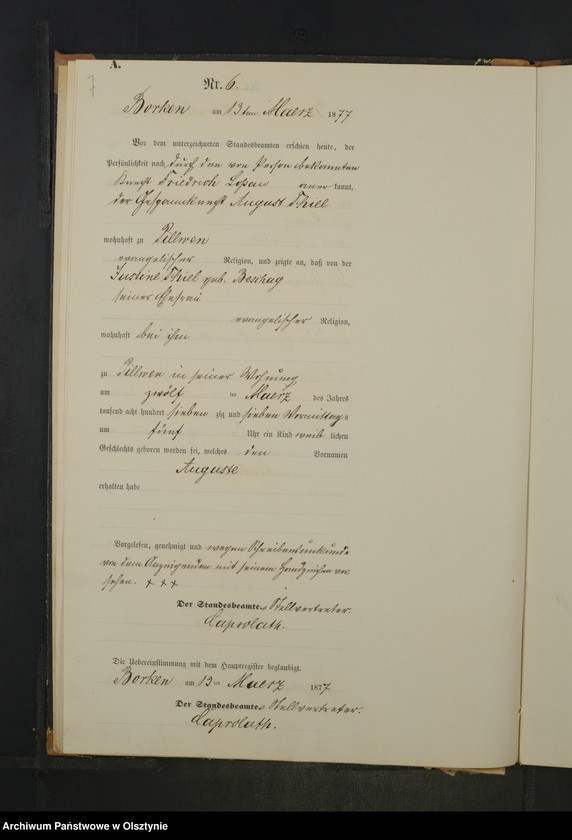 A.
7
Nr. 6.
Borken am 13ten Maerz 1877
Vor dem unterzeichneten Standesbeamten erschien heute, der
Persönlichkeit nach durch den von Person bekannten
Knecht Friedrich aner kannt,
der Gespannknecht August Thiel
wohnhaft zu Pillwen
evangelischer Religion, und zeigte an, daß von der
Justine Thiel geb. Beschag
seiner Ehefrau
evangelischer Religion,
wohnhaft bei ihm
zu Pillwen in seiner Wohnung
am zwölf ten Maerz des Jahres
tausend acht hundert sieben zig und sieben Vormittags
um fünf Uhr ein Kind weib lichen
Geschlechts geboren worden sei, welches den Vornamen
Auguste
erhalten habe
Vorgelesen, genehmigt und wegen Schreibensunkunde
von dem Anzeigenden mit seinem Handzeichen ver
sehen. + + +
Der Standesbeamte. Stellvertreter.
Caprolath.
Die Uebereinstimmung mit dem Hauptregister beglaubigt.
Borken am 13ten Maerz 1877
Der Standesbeamte. Stellvertreter.
Caprolath.
Archiwum Państwowe w Olsztynie